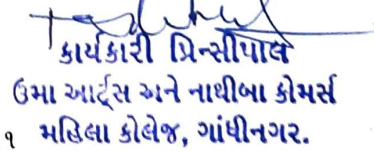 કાર્યકારી પ્રિન્સીપાલ
ઉમા આર્ટ્સ અને નાથીબા કોમર્સ
૧ મહિલા કોલેજ, ગાંધીનગર.